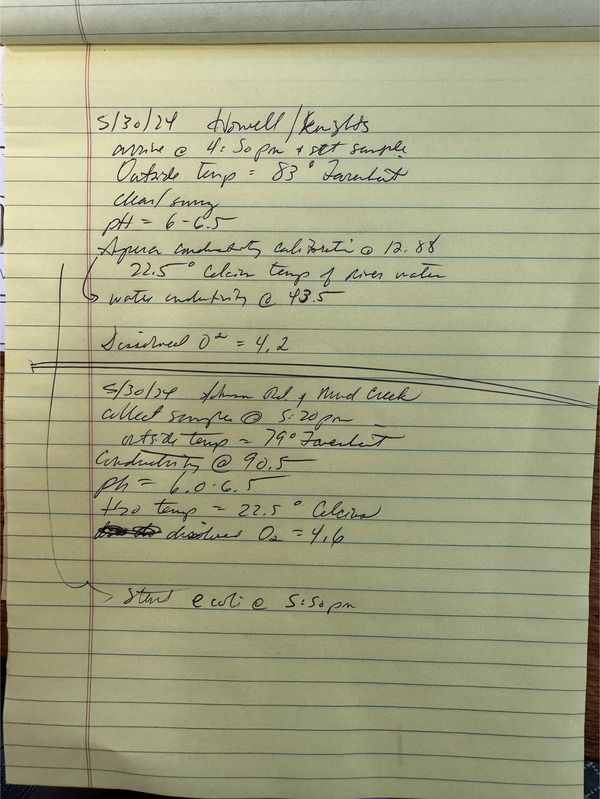 5/30/24 Howell/Knights
arrive @ 4:50pm + set sample
Outside temp = 83° Farenheit
clear/sunny
pH = 6-6.5
Apera conductivity calibratio @ 12.88
22.5° Celcius temp of river water
water conductivity @ 43.5
Dissolved O² = 4.2
5/30/24 Rd & Mud Creek
collect samples @ 5:20pm
outside temp = 79° Farenheit
Conductivity @ 90.5
Ph = 6.0-6.5
H20 temp = 22.5° Celcius
dissolved O₂ = 4.6
Start e coli @ 5:50pm